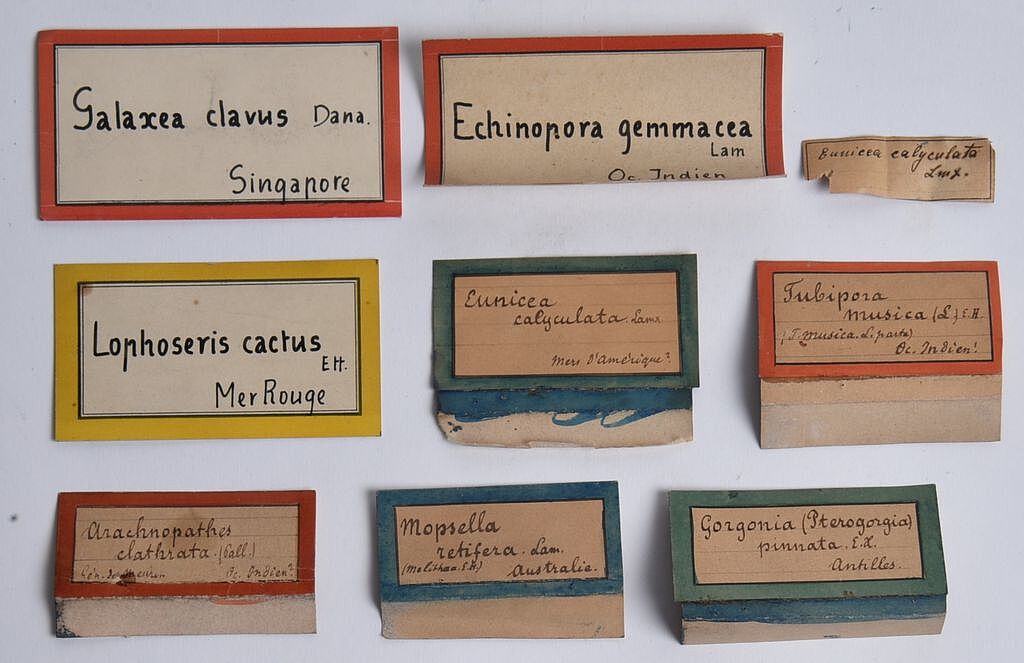 Galaxea clavus Dana.
Singapore
Echinopora gemmacea
Lam
Oc. Indien
Eunicea calyculata
Lmx.
Lophoseris cactus
EH.
Mer Rouge
Eunicea
calyculata. Lamx
Mers d'Amérique?
Tubipora
musica (L.) E.H.
(T. musica. L. parte)
Oc. Indien!
Arachnopathes
clathrata. (Pall.)
Oc. Indien?
Mopsella
retifera. Lam.
(Melithaea. E.H.)
Australie.
Gorgonia (Pterogorgia)
pinnata. E.H.
Antilles.